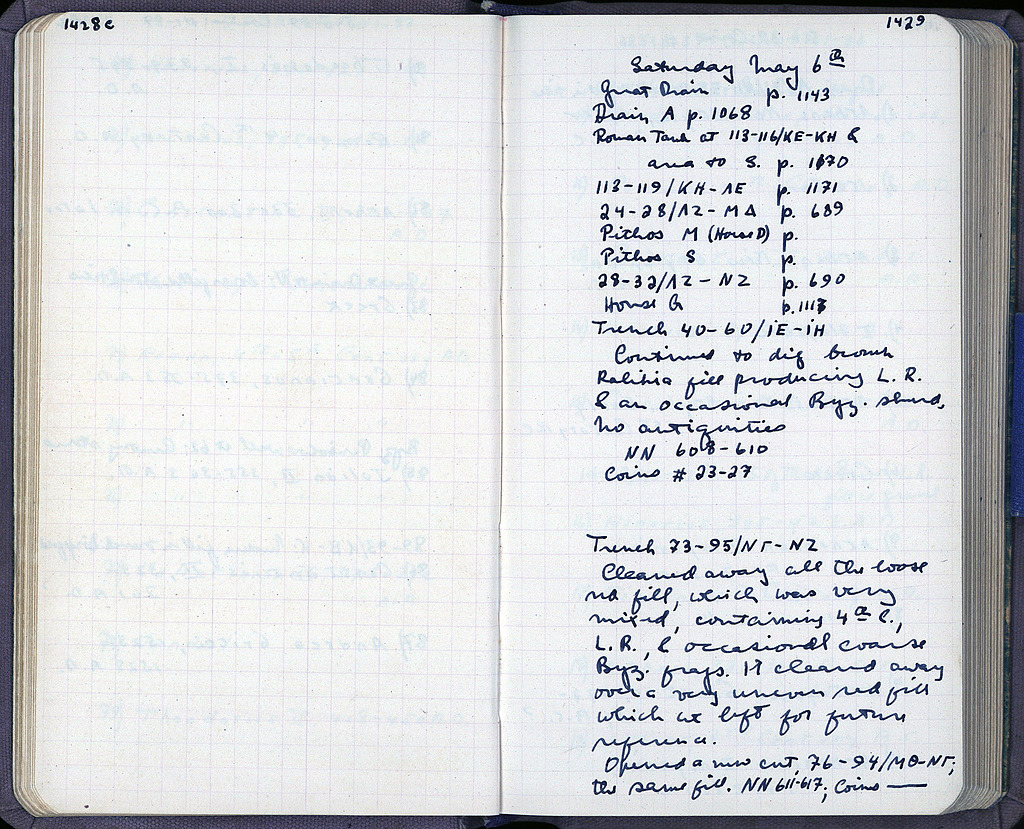 1428c
1429
Saturday May 6th
Great Drain p. 1143
Drain A p. 1068
Roman Tank at 113-116/KE-KH &
area to S. p. 1170
113-119/KH-ΛE p. 1171
24-28/ΛZ-MΔ p. 689
Pithos M (House D) p.
Pithos S p.
28-32/ΛZ-NZ p. 690
House G p. 1113
Trench 40-60/IE-IH
Continued to dig brown
Ralikia fill producing L. R.
& an occasional Byz. sherd,
no antiquities
NN 608-610
Coins # 23-27
Trench 73-95/NΓ-NZ
Cleaned away all the loose
red fill, which was very
mixed, containing 4th C.,
L.R., & occasional coarse
Byz. frags. It cleaned away
over a very uneven red fill
which we left for future
reference.
Opened a new cut, 76-94/MΘ-NΓ;
the same fill. NN 611-617; Coins —